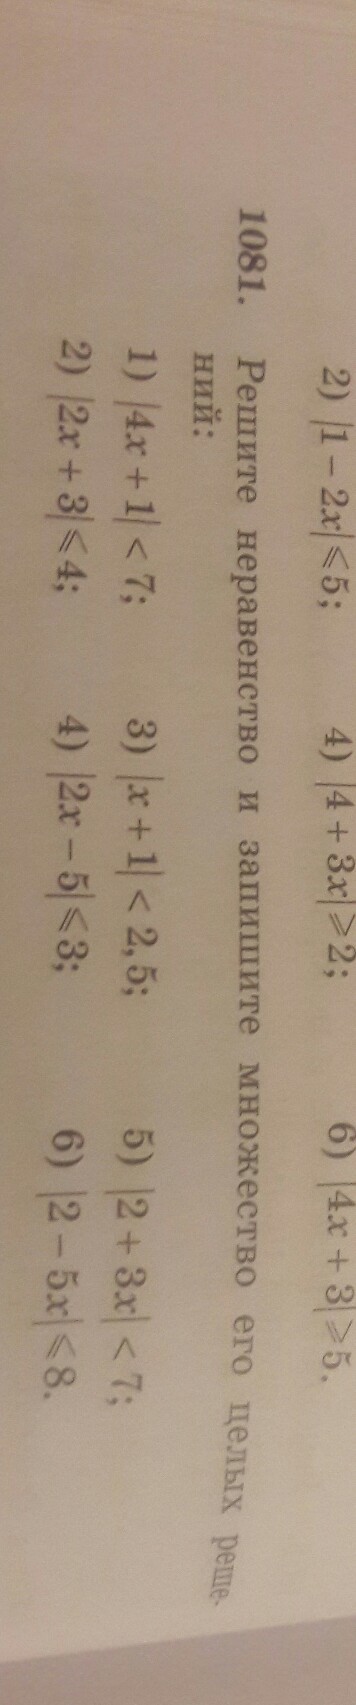 2) |1 − 2x| ⩽ 5; 4) |4 + 3x| ⩾ 2; 6) |4x + 3| ⩾ 5.
1081. Решите неравенство и запишите множество его целых реше-
ний:
1) |4x + 1| < 7; 3) |x + 1| < 2,5; 5) |2 + 3x| < 7;
2) |2x + 3| ⩽ 4; 4) |2x − 5| ⩽ 3; 6) |2 − 5x| ⩽ 8.